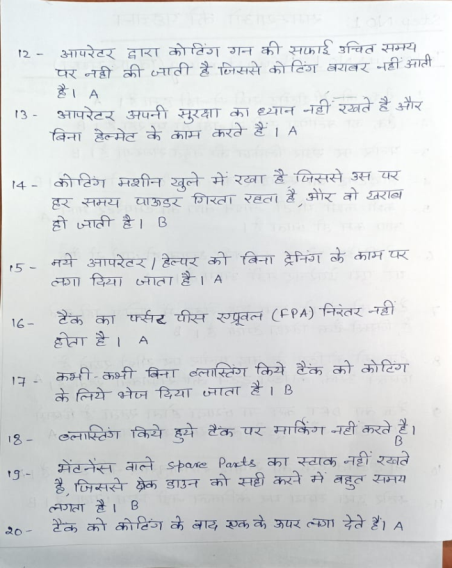 12 - आपरेटर द्वारा कोटिंग गन की सफाई उचित समय
पर नहीं की जाती है जिससे कोटिंग बराबर नहीं आती
है। A
13 - आपरेटर अपनी सुरक्षा का ध्यान नहीं रखते है और
बिना हेल्मेट के काम करते हैं । A
14 - कोटिंग मशीन खुले में रखा है जिससे उस पर
हर समय पाऊडर गिरता रहता है, और वो खराब
हो जाती है। B
15 - नये आपरेटर / हेल्पर को बिना ट्रेनिंग के काम पर
लगा दिया जाता है। A
16 - टैंक का फर्स्ट पीस एप्रूवल (FPA) निरंतर नहीं
होता है । A
17 - कभी-कभी बिना ब्लास्टिंग किये टैंक को कोटिंग
के लिये भेज दिया जाता है। B
18 - ब्लास्टिंग किये हुये टैंक पर मार्किंग नहीं करते है।
B
19 - मेंटनेंस वाले spare Parts का स्टाक नहीं रखते
है, जिससे ब्रेक डाउन को सही करने मे बहुत समय
लगता है। B
20 - टैंक को कोटिंग के बाद एक के ऊपर लगा देते है। A